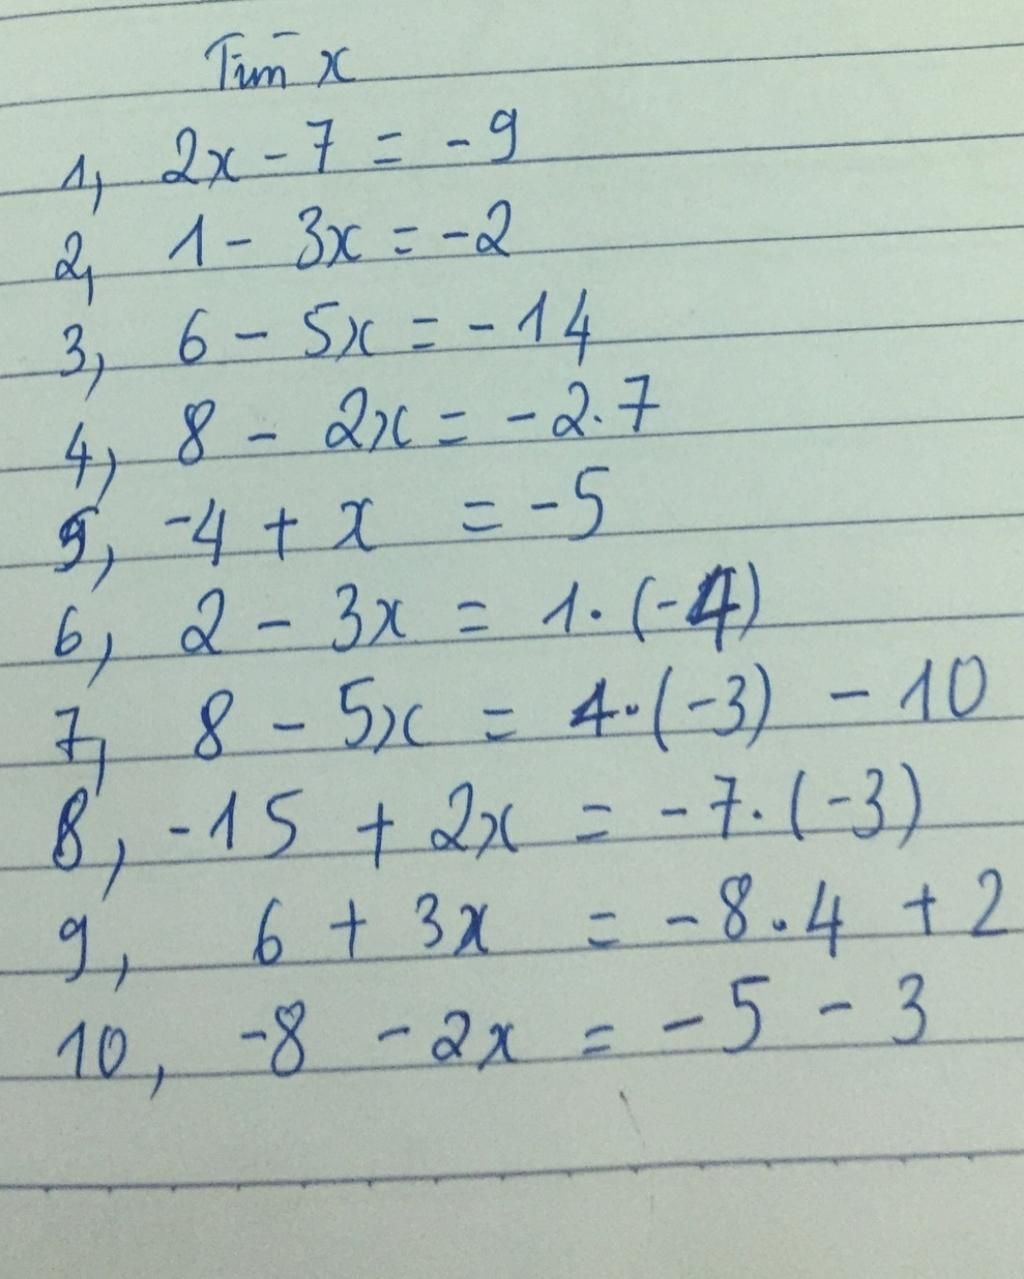 Tìm x
1, 2x - 7 = -9
2, 1 - 3x = -2
3, 6 - 5x = -14
4, 8 - 2x = -2.7
5, -4 + x = -5
6, 2 - 3x = 1. (-4)
7, 8 - 5x = 4. (-3) - 10
8, -15 + 2x = -7. (-3)
9, 6 + 3x = -8.4 + 2
10, -8 - 2x = -5 - 3